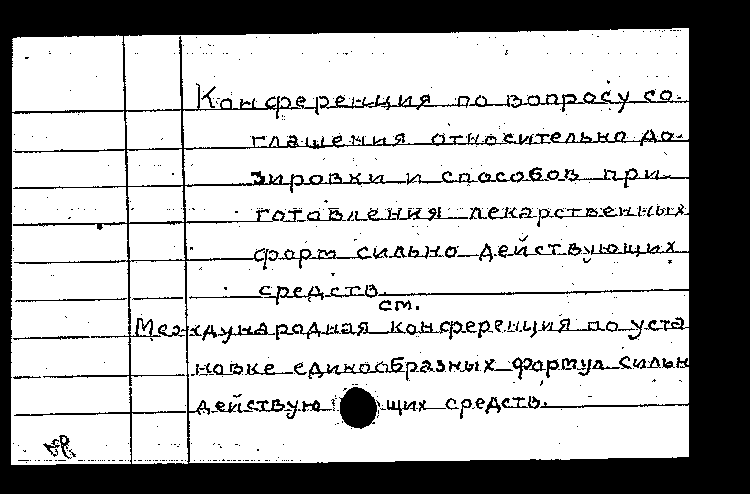 Конференция по вопросу со-
глашения относительно до-
зировки и способов при-
готовления лекарственных
форм сильно действующих
средств.
см.
Международная конференция по уста
новке единообразных формул сильн
действую щих средств.